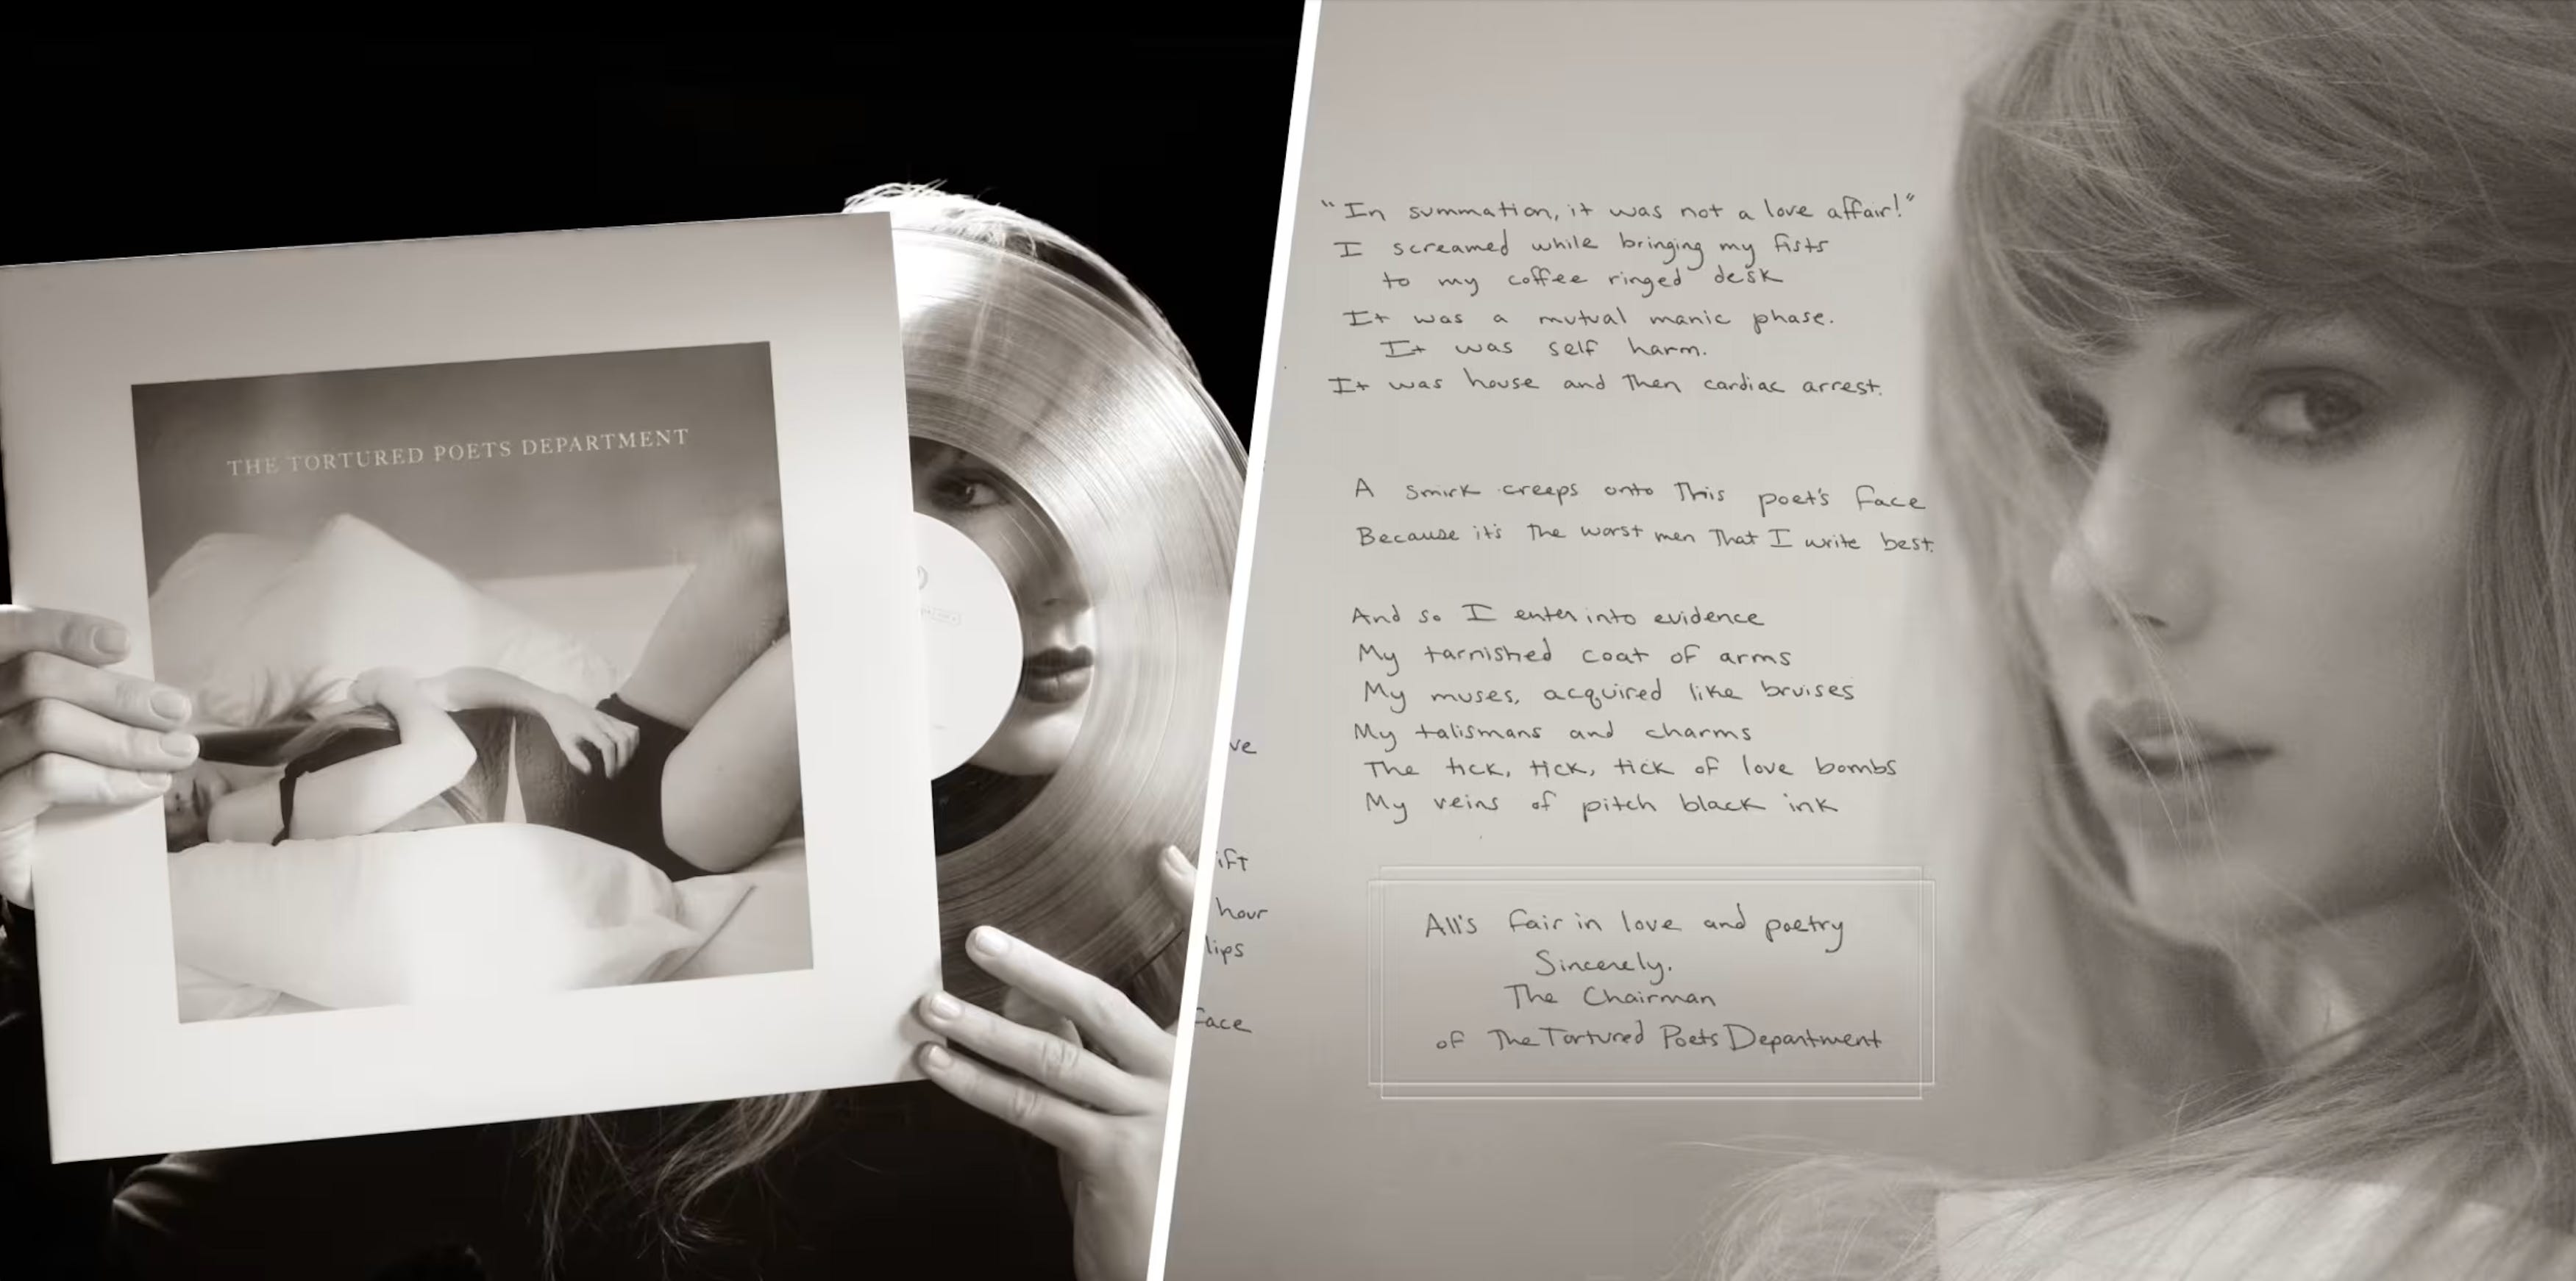 THE TORTURED POETS DEPARTMENT
ve
ift
hour
lips
face
"In summation, it was not a love affair!"
I screamed while bringing my fists
to my coffee ringed desk
It was a mutual manic phase.
It was self harm.
It was house and then cardiac arrest.
A smirk creeps onto this poet's face
Because it's the worst men that I write best.
And so I enter into evidence
My tarnished coat of arms
My muses, acquired like bruises
My talismans and charms
The tick, tick, tick of love bombs
My veins of pitch black ink
All's fair in love and poetry
Sincerely,
The Chairman
of The Tortured Poets Department